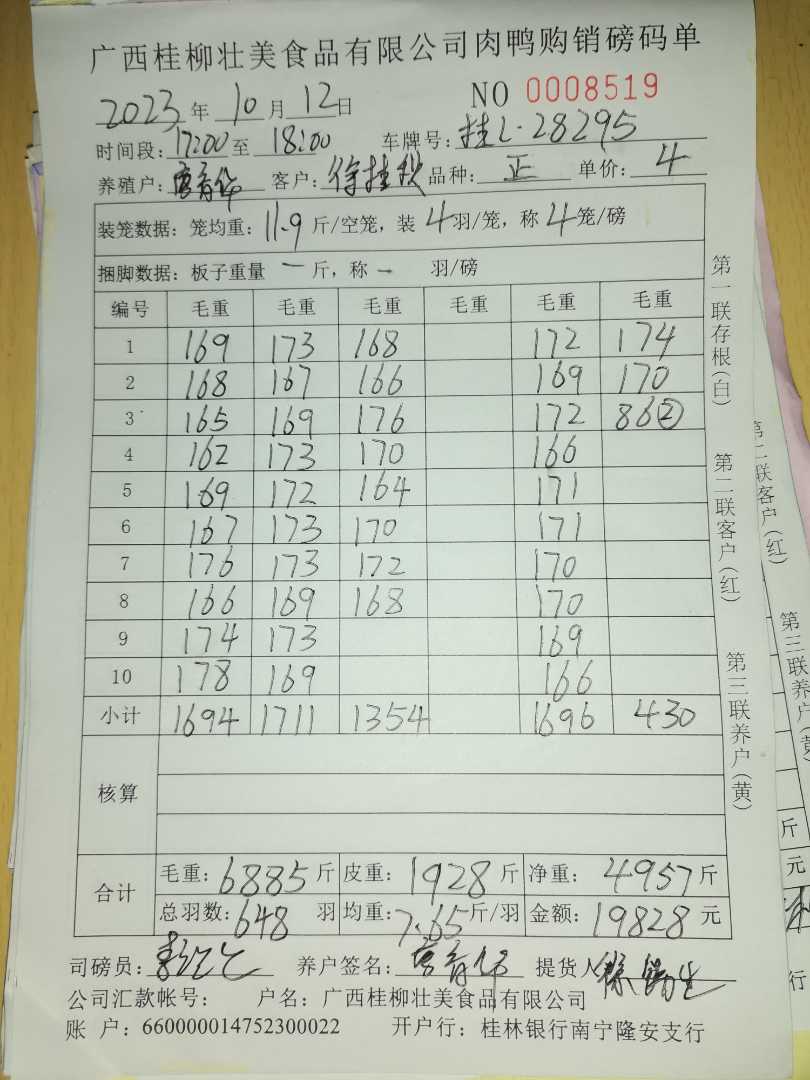 广西桂柳壮美食品有限公司肉鸭购销磅码单
2023年10月12日 NO 0008519
时间段:17:00至18:00 车牌号:桂L·28295
养殖户: 客户:徐桂秋 品种:正 单价:4
装笼数据:笼均重:11.9斤/空笼,装4羽/笼,称4笼/磅
捆脚数据:板子重量 一 斤,称 一 羽/磅
编号 毛重 毛重 毛重 毛重 毛重 毛重
1 169 173 168 172 174
2 168 167 166 169 170
3 165 169 176 172 86②
4 162 173 170 166
5 169 172 164 171
6 167 173 170 171
7 176 173 172 170
8 166 169 168 170
9 174 173 169
10 178 169 166
小计 1694 1711 1354 1696 430
核算
合计 毛重:6885斤 皮重:1928斤 净重:4957斤
总羽数:648羽 均重:7.65斤/羽 金额:19828元
司磅员: 养户签名: 提货人
公司汇款帐号: 户名:广西桂柳壮美食品有限公司
账 户:660000014752300022 开户行:桂林银行南宁隆安支行
第一联存根(白)
第二联客户(红)
第三联养户(黄)
第二联客户(红)
第三联养户(黄)
斤
元
行